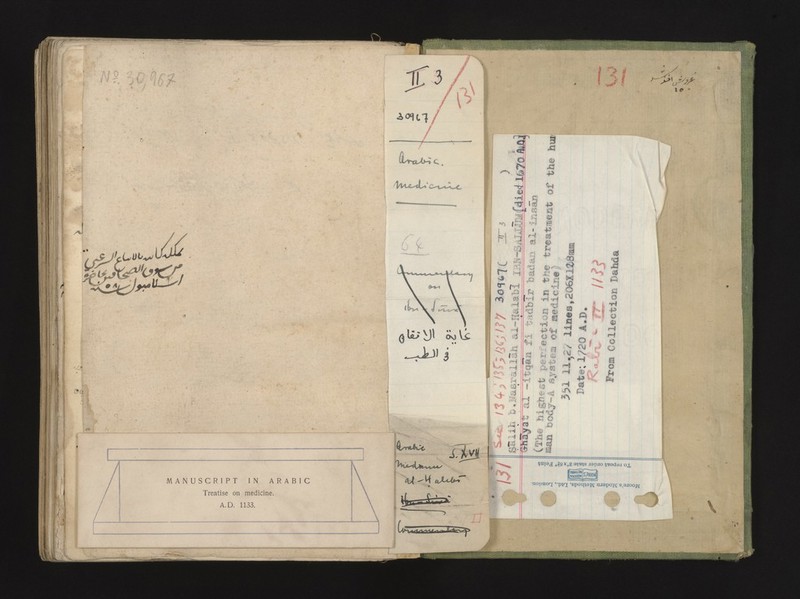 Nº 30,967
MANUSCRIPT IN ARABIC
Treatise on medicine.
A.D. 1133.
II 3
131
30967
Arabic.
Medicine
64
Commentary
on
Ibn Sina
غاية الاتقان
في الطب
Arabic
S. XVII
Medicine
al-Halebi
Commentary
II
131
131 See 134; 135; 136; 137 30967( II 3 )
Salih b. Nasrallah al-Halabi IBN-SALLUM [died 1670 A.D]
Ghayat al -itqan fi tadbir badan al-insan
(The highest perfection in the treatment of the hu
man body-A system of medicine)
351 ll,27 lines,206X128mm
Date:1720 A.D.
Rabi - II 1133
From Collection Dahda
To repeat order state nº and Point
Moore's Modern Methods, Ltd., London